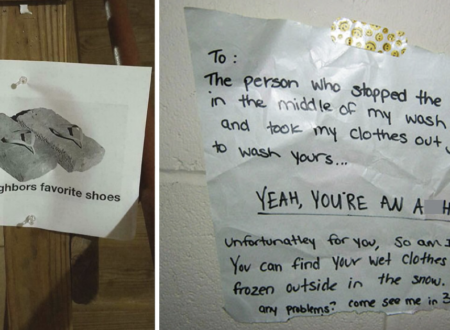 ghbors favorite shoes
To:
The person who stopped the
in the middle of my wash
and took my clothes out
to wash yours...
YEAH, YOU'RE AN A H
Unfortunatley for you, so am I
You can find your wet clothes
frozen outside in the snow.
any problems? come see me in 3